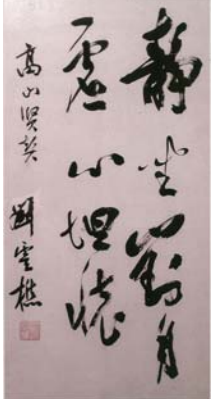 靜坐
虛心坦懷
高山賢契
劉雲樵